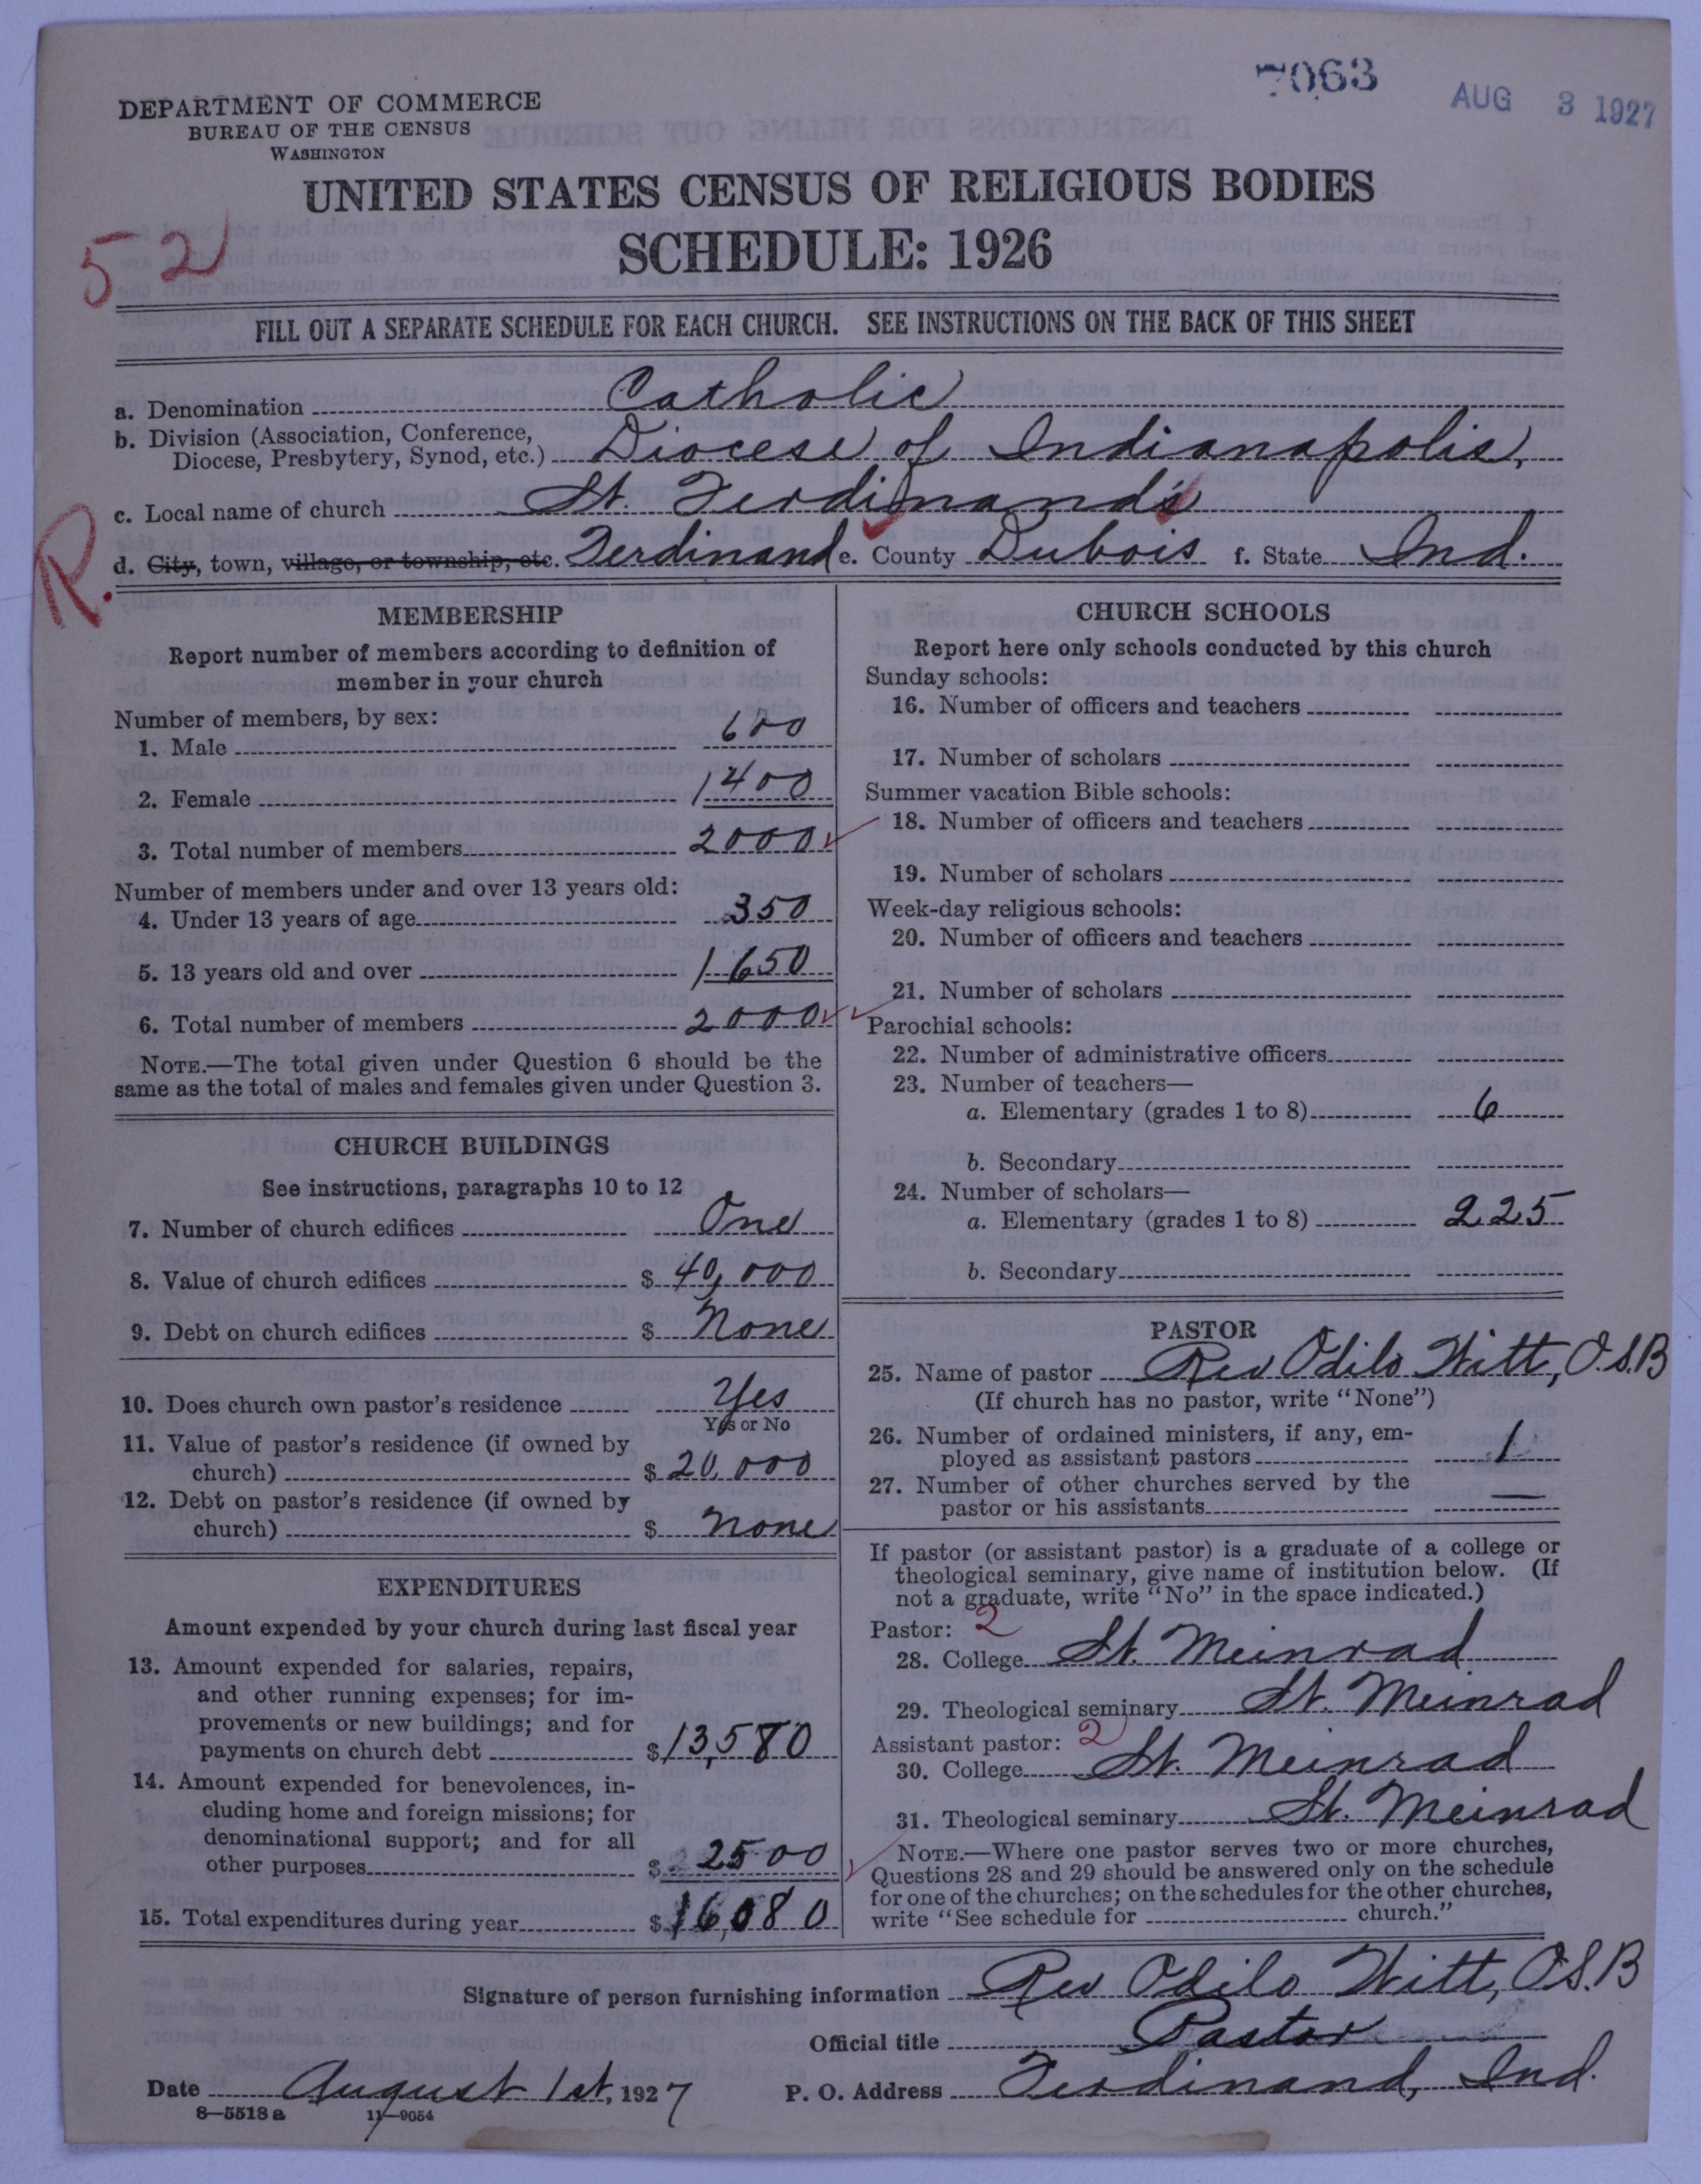 7063
AUG 3 1927
DEPARTMENT OF COMMERCE
BUREAU OF THE CENSUS
WASHINGTON
UNITED STATES CENSUS OF RELIGIOUS BODIES
SCHEDULE: 1926
52
FILL OUT A SEPARATE SCHEDULE FOR EACH CHURCH. SEE INSTRUCTIONS ON THE BACK OF THIS SHEET
a. Denomination Catholic
b. Division (Association, Conference, Diocese, Presbytery, Synod, etc.) Diocese of Indianapolis,
c. Local name of church St. Ferdinand's
R.
d. City, town, village, or township, etc. Ferdinand e. County Dubois f. State Ind.
MEMBERSHIP
Report number of members according to definition of
member in your church
Number of members, by sex:
1. Male 600
2. Female 1400
3. Total number of members 2000
Number of members under and over 13 years old:
4. Under 13 years of age 350
5. 13 years old and over 1650
6. Total number of members 2000
NOTE.—The total given under Question 6 should be the
same as the total of males and females given under Question 3.
CHURCH BUILDINGS
See instructions, paragraphs 10 to 12
7. Number of church edifices One
8. Value of church edifices $ 40,000
9. Debt on church edifices $ None
10. Does church own pastor's residence Yes
Yes or No
11. Value of pastor's residence (if owned by
church) $ 20,000
12. Debt on pastor's residence (if owned by
church) $ none
EXPENDITURES
Amount expended by your church during last fiscal year
13. Amount expended for salaries, repairs,
and other running expenses; for im-
provements or new buildings; and for
payments on church debt $ 13,580
14. Amount expended for benevolences, in-
cluding home and foreign missions; for
denominational support; and for all
other purposes $ 2500
15. Total expenditures during year $ 16,080
CHURCH SCHOOLS
Report here only schools conducted by this church
Sunday schools:
16. Number of officers and teachers
17. Number of scholars
Summer vacation Bible schools:
18. Number of officers and teachers
19. Number of scholars
Week-day religious schools:
20. Number of officers and teachers
21. Number of scholars
Parochial schools:
22. Number of administrative officers
23. Number of teachers—
a. Elementary (grades 1 to 8) 6
b. Secondary
24. Number of scholars—
a. Elementary (grades 1 to 8) 225
b. Secondary
PASTOR
25. Name of pastor Rev Odilo Witt, O.S.B
(If church has no pastor, write "None")
26. Number of ordained ministers, if any, em-
ployed as assistant pastors 1
27. Number of other churches served by the
pastor or his assistants —
If pastor (or assistant pastor) is a graduate of a college or
theological seminary, give name of institution below. (If
not a graduate, write "No" in the space indicated.)
Pastor: 2
28. College St. Meinrad
29. Theological seminary St. Meinrad
Assistant pastor: 2
30. College St. Meinrad
31. Theological seminary St. Meinrad
NOTE.—Where one pastor serves two or more churches,
Questions 28 and 29 should be answered only on the schedule
for one of the churches; on the schedules for the other churches,
write "See schedule for church."
Signature of person furnishing information Rev Odilo Witt, O.S.B
Official title Pastor
Date August 1st, 1927 P. O. Address Ferdinand, Ind.
8—5518 a 11—9054